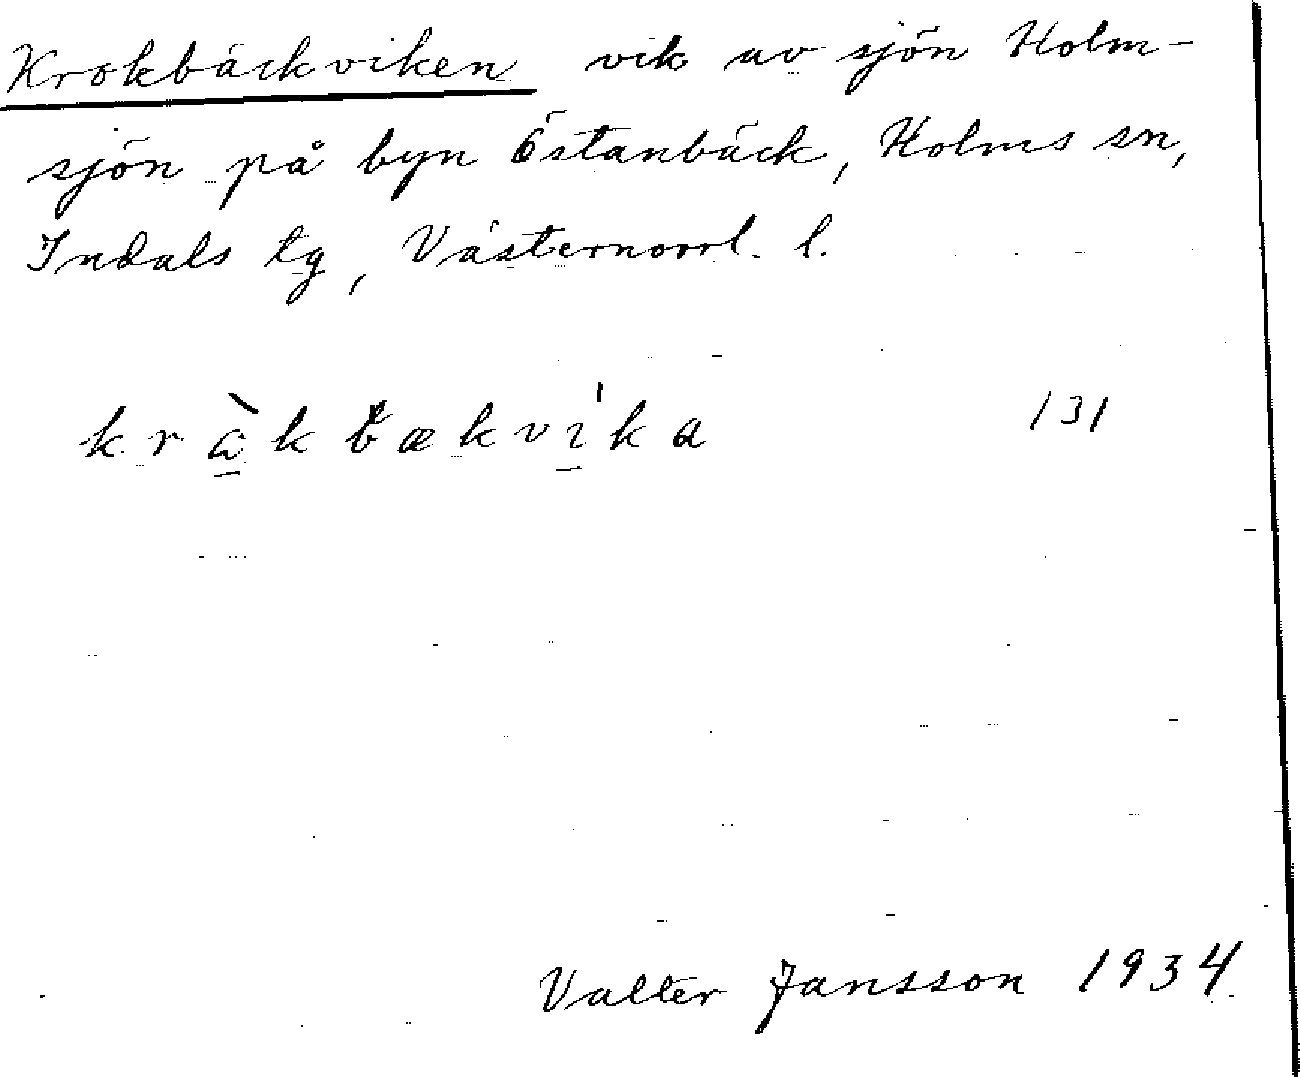 Krokbäckviken vik av sjön Holm-
sjön på byn Östanbäck, Holms sn,
Indals tg, Västernorrl. l.
kràkbækvi̍ka 131
Valter Jansson 1934